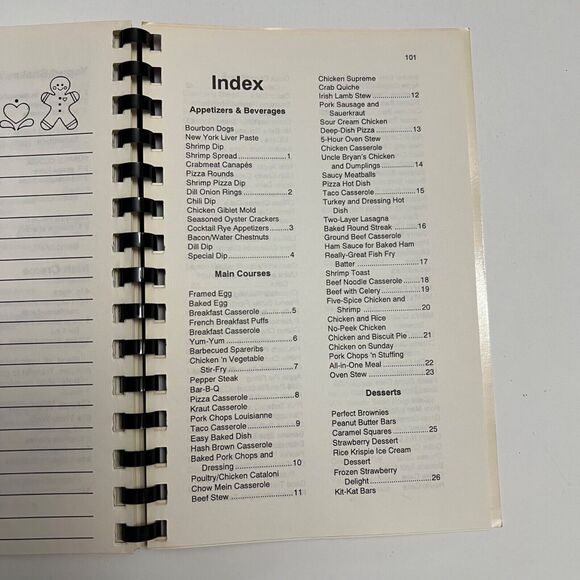 101
Index
Appetizers & Beverages
Bourbon Dogs
New York Liver Paste
Shrimp Dip
Shrimp Spread ................ 1
Crabmeat Canapés
Pizza Rounds
Shrimp Pizza Dip
Dill Onion Rings ............... 2
Chili Dip
Chicken Giblet Mold
Seasoned Oyster Crackers
Cocktail Rye Appetizers ........ 3
Bacon/Water Chestnuts
Dill Dip
Special Dip .................... 4
Main Courses
Framed Egg
Baked Egg
Breakfast Casserole ............ 5
French Breakfast Puffs
Breakfast Casserole
Yum-Yum ....................... 6
Barbecued Spareribs
Chicken 'n Vegetable
Stir-Fry ....................... 7
Pepper Steak
Bar-B-Q
Pizza Casserole ................ 8
Kraut Casserole
Pork Chops Louisianne
Taco Casserole ................. 9
Easy Baked Dish
Hash Brown Casserole
Baked Pork Chops and
Dressing ....................... 10
Poultry/Chicken Cataloni
Chow Mein Casserole
Beef Stew ...................... 11
Chicken Supreme
Crab Quiche
Irish Lamb Stew ................ 12
Pork Sausage and
Sauerkraut
Sour Cream Chicken
Deep-Dish Pizza ................ 13
5-Hour Oven Stew
Chicken Casserole
Uncle Bryan's Chicken
and Dumplings .................. 14
Saucy Meatballs
Pizza Hot Dish
Taco Casserole ................. 15
Turkey and Dressing Hot
Dish
Two-Layer Lasagna
Baked Round Streak ............. 16
Ground Beef Casserole
Ham Sauce for Baked Ham
Really-Great Fish Fry
Batter ......................... 17
Shrimp Toast
Beef Noodle Casserole .......... 18
Beef with Celery ............... 19
Five-Spice Chicken and
Shrimp ......................... 20
Chicken and Rice
No-Peek Chicken
Chicken and Biscuit Pie ........ 21
Chicken on Sunday
Pork Chops 'n Stuffing
All-in-One Meal ................ 22
Oven Stew ...................... 23
Desserts
Perfect Brownies
Peanut Butter Bars
Caramel Squares ................ 25
Strawberry Dessert
Rice Krispie Ice Cream
Dessert
Frozen Strawberry
Delight ........................ 26
Kit-Kat Bars